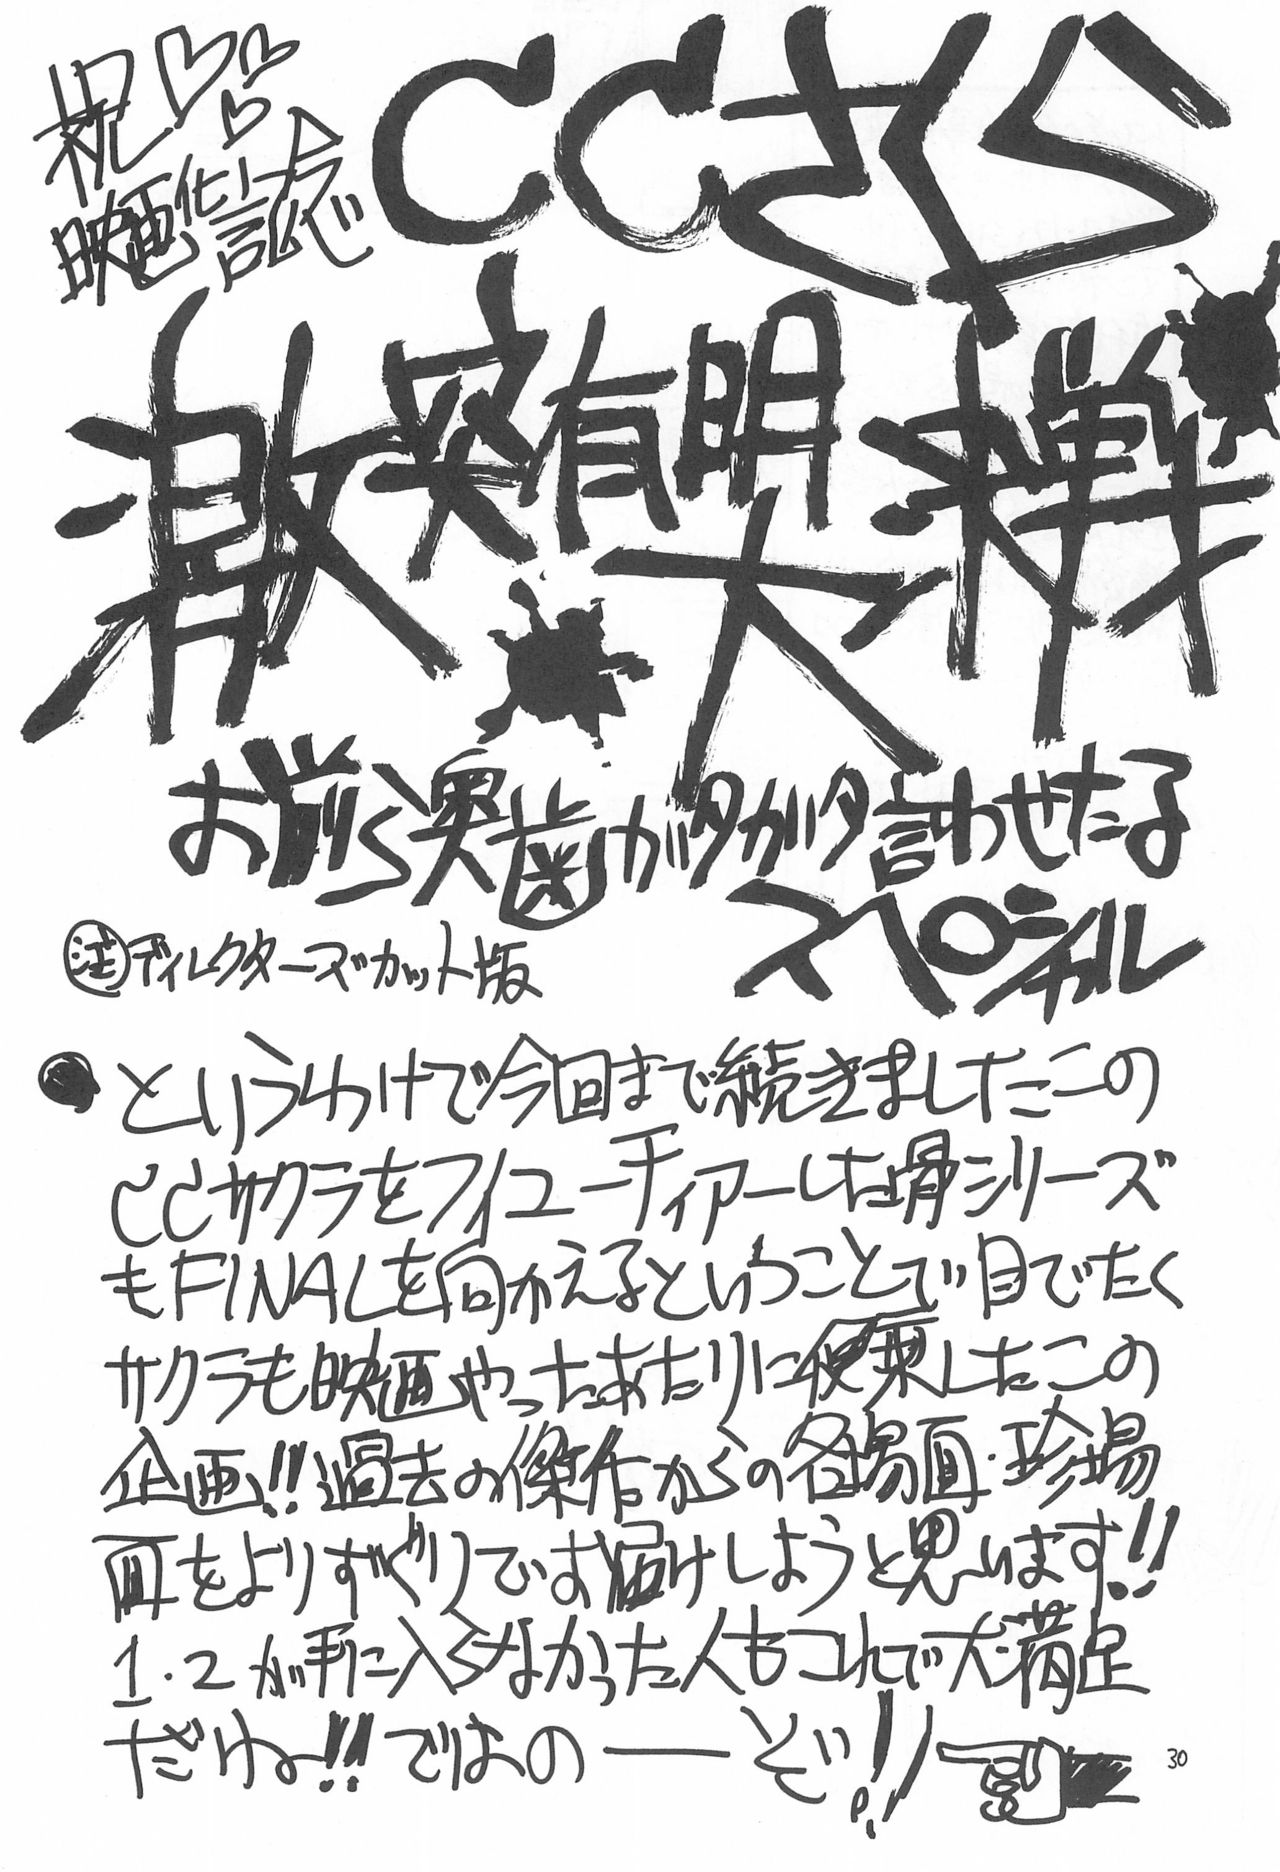 祝♡♡♡
映画化!!記念で
CCさくら
激突有明
大決戦
お前ら奥歯ガタガタ言わせたる
スペシャル
注ディレクターズカット版
●というわけで今回まで続きましたこの
CCサクラをフィーチャーした シリーズ
もFINALを向かえるということで目でたく
サクラも映画やったあたりに便乗したこの
企画!!過去の傑作からの名場面・珍場
面をよりすぐりでお届けしようと思います!!
1・2が手に入らなかった人もこれで大満足
だね!!ではの──ぞい!!
30